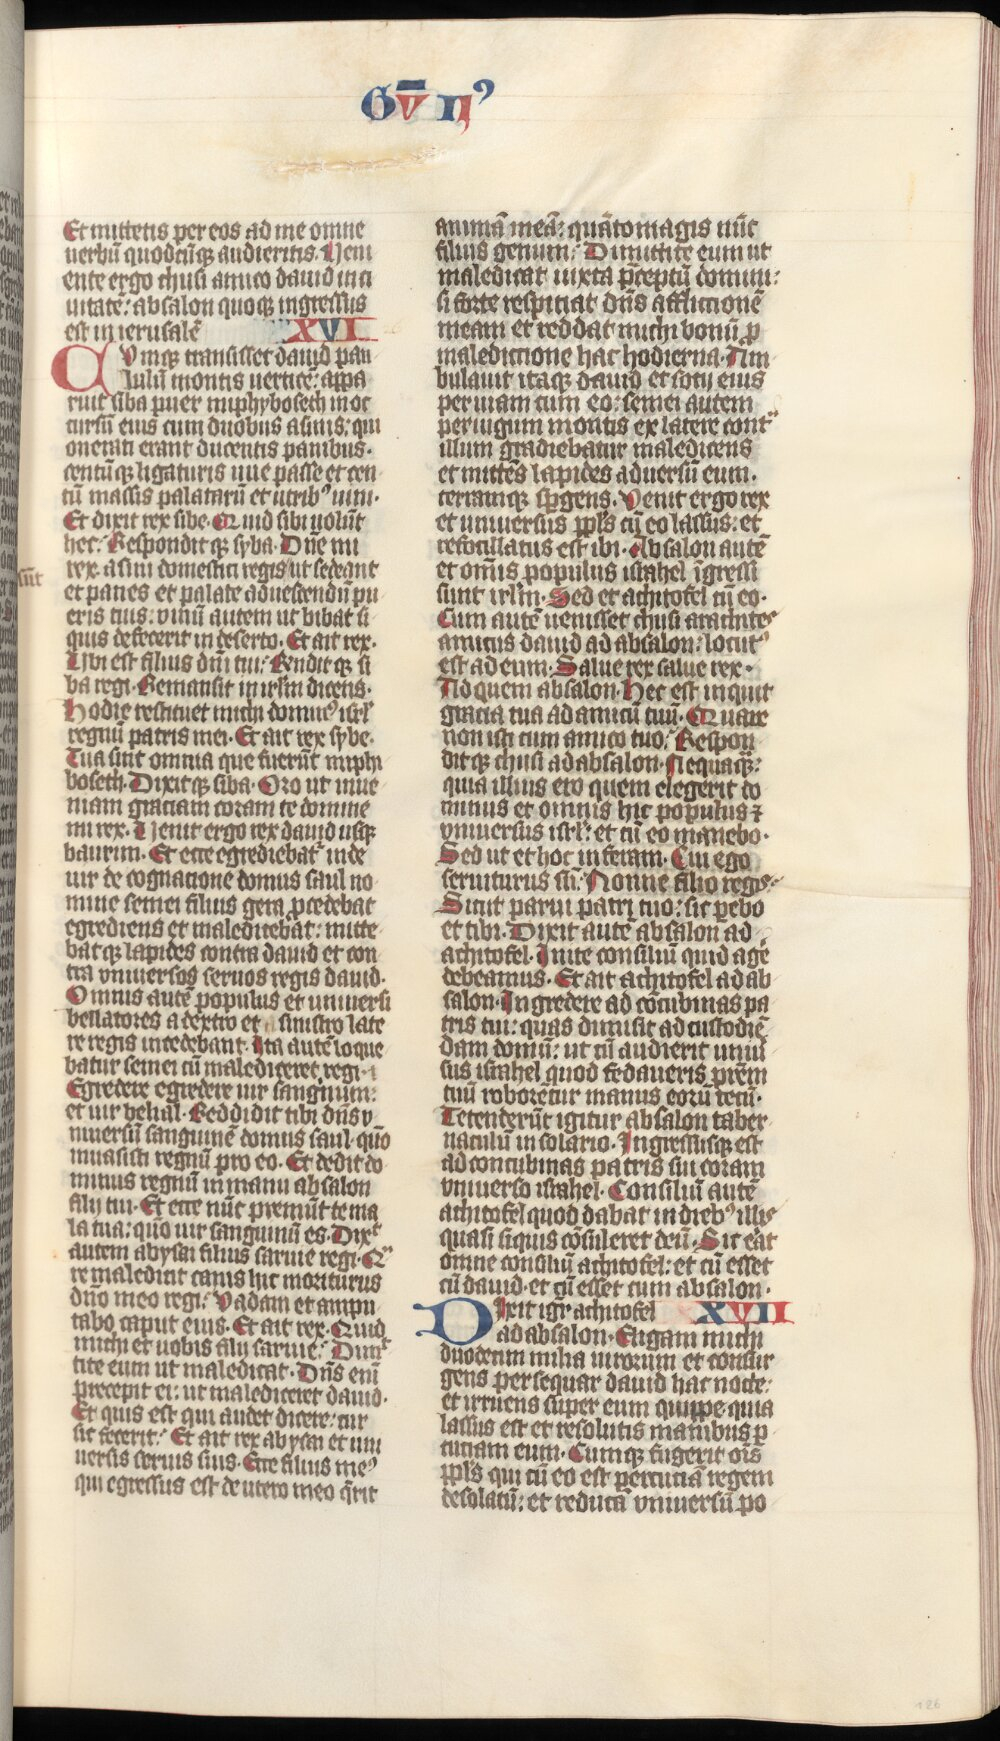 Gū IIꝰ
Et mittetis per eos ad me omne
uerbū quodcūqꝫ audieritis. Veni
ente ergo chusi amico dauid in ci
uitatē: absalon quoqꝫ ingressus
est in ierusalē XVI
CUmqꝫ transisset dauid pau
lulū montis uerticē: appa
ruit siba puer miphyboseth in oc
cursū eius cum duobus asinis: qui
onerati erant ducentis panibus.
centūqꝫ ligaturis uue passe et cen
tū massis palatarū et utribꝰ uini.
Et dixit rex sibe. Quid sibi uolūt
hec. Respondit qꝫ syba. Dn̄e mi
rex. asini domestici regis ut sedeant
sūt
et panes et palate ad uescendū pu
eris tuis: uinū autem ut bibat si
quis defecerit in deserto. Et ait rex.
Ubi est filius dn̄i tui. Rn̄dit qꝫ si
ba regi. Remansit in irl̄m dicens.
Hodie restituet michi domusꝰ isrl̄
regnū patris mei. Et ait rex sybe.
Tua sint omnia que fuerūt miphi
boseth. Dixit qꝫ siba. Oro ut inue
niam graciam coram te domine
mi rex. Venit ergo rex dauid usqꝫ
baurim. Et ecce egrediebat᷑ inde
uir de cognacione domus saul no
mine semei filius gera p̄cedebat
egrediens et maledicebat: mitte
bat qꝫ lapides contra dauid et con
tra vniuersos seruos regis dauid.
Omnis autē populus et uniuersi
bellatores a dextro et sinistro late
re regis incedebant. Ita autē loque
batur semei cū malediceret regi.
Egredere egredere uir sanginum:
et uir belial. Reddidit tibi dn̄s v
niuersū sanguinē domus saul. quō
inuasisti regnū pro eo. Et dedit do
minus regnū in manu absalon
filij tui. Et ecce nūc premūt te ma
la tua: quō uir sanguinū es. Dixᵗ
autem abysai filius saruie regi. Qr
re maledicit canis hic moriturus
dn̄o meo regi. Vadam et ampu
tabo caput eius. Et ait rex. Quid
michi et uobis filij saruie. Dimit
tite eum ut maledicat. Dn̄s eni
precepit ei: ut malediceret dauid.
Et quis est qui audet dicere: cur
sic fecerit. Et ait rex abysai et uni
uersis seruis suis. Ecce filius meꝰ
qui egressus est de utero meo q̄rit
animā meā: quāto magis nūc
filius gemini. Dimittite eum ut
maledicat iuxta p̄ceptū domini:
si forte respiciat dn̄s afflictionē
meam et reddat michi bonū ꝓ
maledictione hac hodierna. Am
bulauit itaqꝫ dauid et socij eius
per uiam cum eo: semei autem
per iugum montis ex latere contra
illum gradiebatur maledicens
et mittēs lapides aduersū eum.
terramqꝫ sꝑgens. Venit ergo rex
et uniuersus ppl̄s cū eo lassus: et
refocillatus est ibi. Absalon autē
et omis populus israhel īgressi
sunt irl̄m. Sed et achitofel cū eo.
Cum autē uenisset chusi arachites
amicus dauid ad absalon: locutꝰ
est ad eum. Salue rex salue rex.
Ad quem absalon. Hec est inquit
gracia tua ad amicū tuū. Quare
non isti cum amico tuo. Respon
dit qꝫ chusi ad absalon. Nequaqꝫ:
quia illius ero quem elegerit do
minus et omnis hic populus ⁊
vniuersus isrl̄: et cū eo manebo.
Sed ut et hoc inferam. Cui ego
seruiturus sū. Nonne filio regis.
Sicut parui patri tuo: sic ꝑebo
et tibi. Dixit autē absalon ad
achitofel. Inite consiliū quid agē
debeamus. Et ait achitofel ad ab
salon. Ingredere ad cōcubinas pa
tris tui: quas dimisit ad custodiē
dam domū: ut cū audierit uniū
sus israhel quod fedaueris prēm
tuū roboretur manus eorū tecū.
Tetenderūt igitur absalon taber
naculū in solario. Ingressusqꝫ est
ad concubinas patris sui coram
vniuerso israhel. Consiliū autē
achitofel quod dabat in diebꝰ illis
quasi siquis cōsuleret deū. Sic eāt
omne consiliū achitofel: et cū esset
cū dauid. et cū esset cum absalon.
DIxit igr̄ achitofel XVII
ad absalon. Eligam michi
duodecim milia uirorum et consur
gens persequar dauid hac nocte:
et irruens super eum quippe quia
lassus est et resolutis manibus ꝑ
cutiam eum. Cumqꝫ fugerit ois̄
ppl̄s qui cū eo est percutiā regem
desolatū: et reducā vniuersū po
126